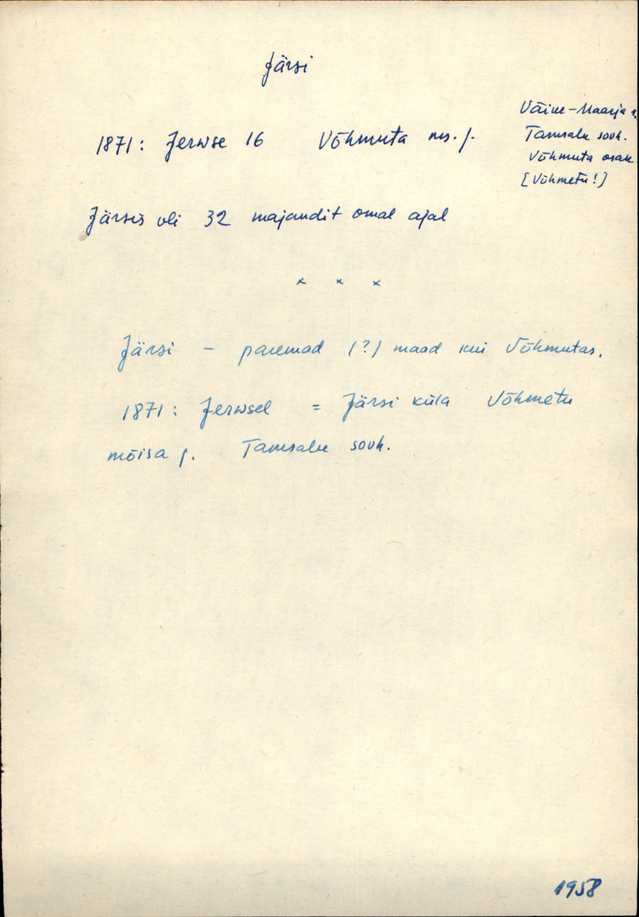 Järsi
Väike-Maarja
Tamsalu sovh.
Võhmuta osak.
[Võhmetu!]
1871: Jerwse 16 Võhmuta ms. j.
Järsis oli 32 majandit omal ajal
x x x
Järsi - paremad (?) maad kui Võhmutas.
1871: Jerwsel = Järsi küla Võhmetu
mõisa j. Tamsalu sovh.
1958